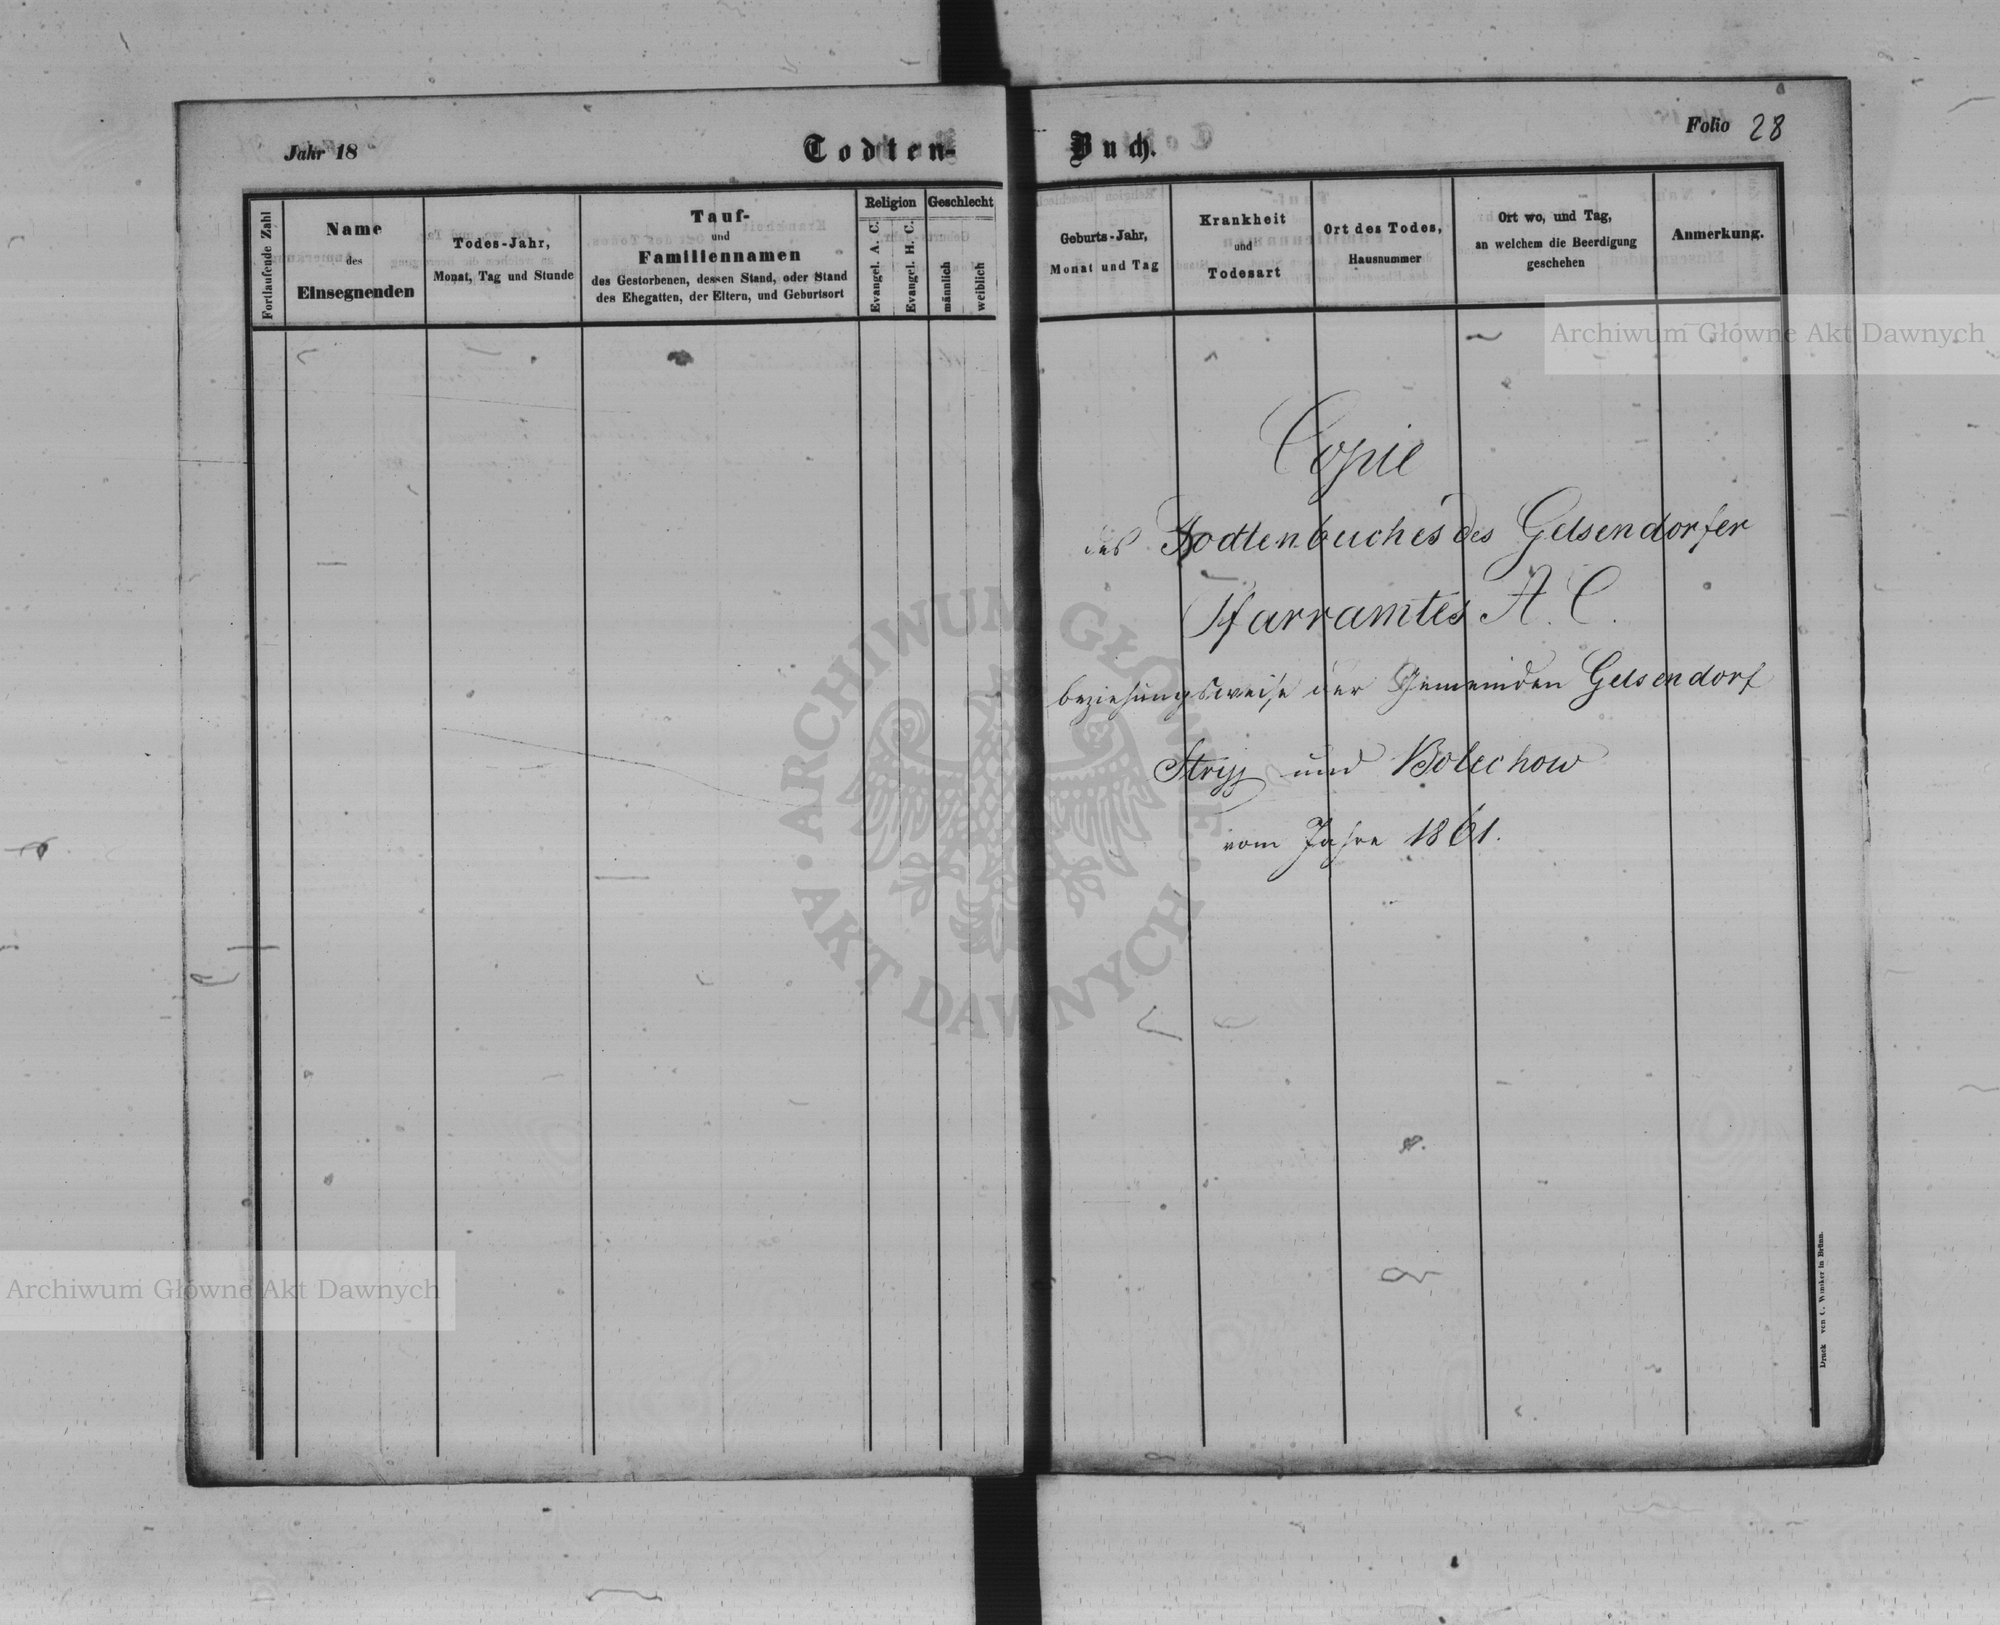 Jahr 18
Todten-
Buch.
Folio 28
Fortlaufende Zahl
Name
des
Einsegnenden
Todes-Jahr,
Monat, Tag und Stunde
Tauf-
und
Familiennamen
des Gestorbenen, dessen Stand, oder Stand
des Ehegatten, der Eltern, und Geburtsort
Religion
Evangel. A. C.
Evangel. H. C.
Geschlecht
männlich
weiblich
Geburts-Jahr,
Monat und Tag
Krankheit
und
Todesart
Ort des Todes,
Hausnummer
Ort wo, und Tag,
an welchem die Beerdigung
geschehen
Anmerkung.
Copie
des Todtenbuches des Gelsendorfer
Pfarramtes A. C.
beziehungsweise der Gemeinden Gelsendorf
Stryj und Bolechow
vom Jahre 1861.
Druck von C. Winiker in Brünn.
Archiwum Główne Akt Dawnych
Archiwum Główne Akt Dawnych
ARCHIWUM GŁÓWNE
AKT DAWNYCH